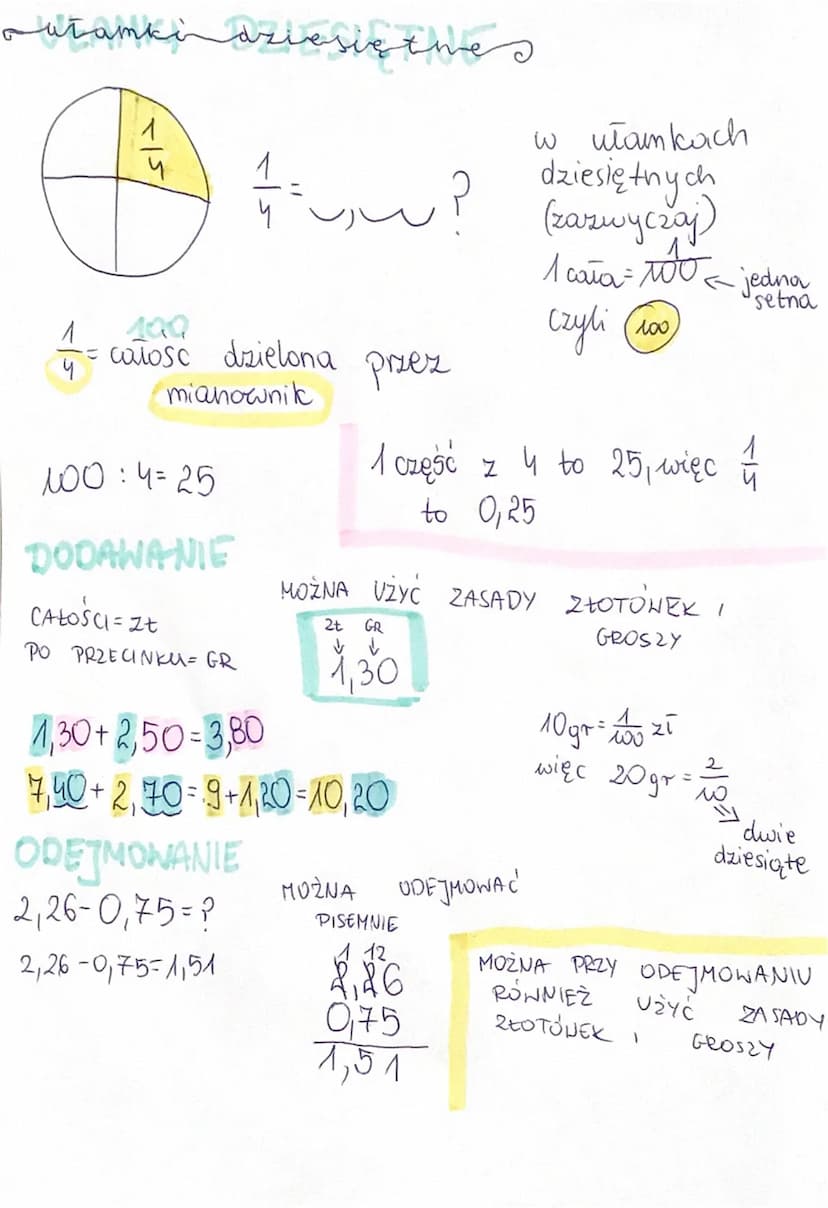 UŁAMKI DZIESIĘTNE
ułamki dziesiętne
1/4
1/4 = _,_ _ ?
w ułamkach
dziesiętnych
(zazwyczaj)
1 cała = 1/100 ← jedna
setna
czyli 100
100
1/4 = całość dzielona przez
mianownik
100 : 4 = 25
1 część z 4 to 25, więc 1/4
to 0,25
DODAWANIE
MOŻNA UŻYĆ ZASADY ZŁOTÓWEK I
GROSZY
CAŁOŚCI = Zł
PO PRZECINKU = GR
Zł GR
↓ ↓
1,30
1,30 + 2,50 = 3,80
7,40 + 2,70 = 9 + 1,20 = 10,20
10gr = 1/100 zł
więc 20gr = 2/10
dwie
dziesiąte
ODEJMOWANIE
2,26 - 0,75 = ?
2,26 - 0,75 = 1,51
MOŻNA ODEJMOWAĆ
PISEMNIE
1 12
2,26
0,75
1,51
MOŻNA PRZY ODEJMOWANIU
RÓWNIEŻ UŻYĆ ZASADY
ZŁOTÓWEK I GROSZY